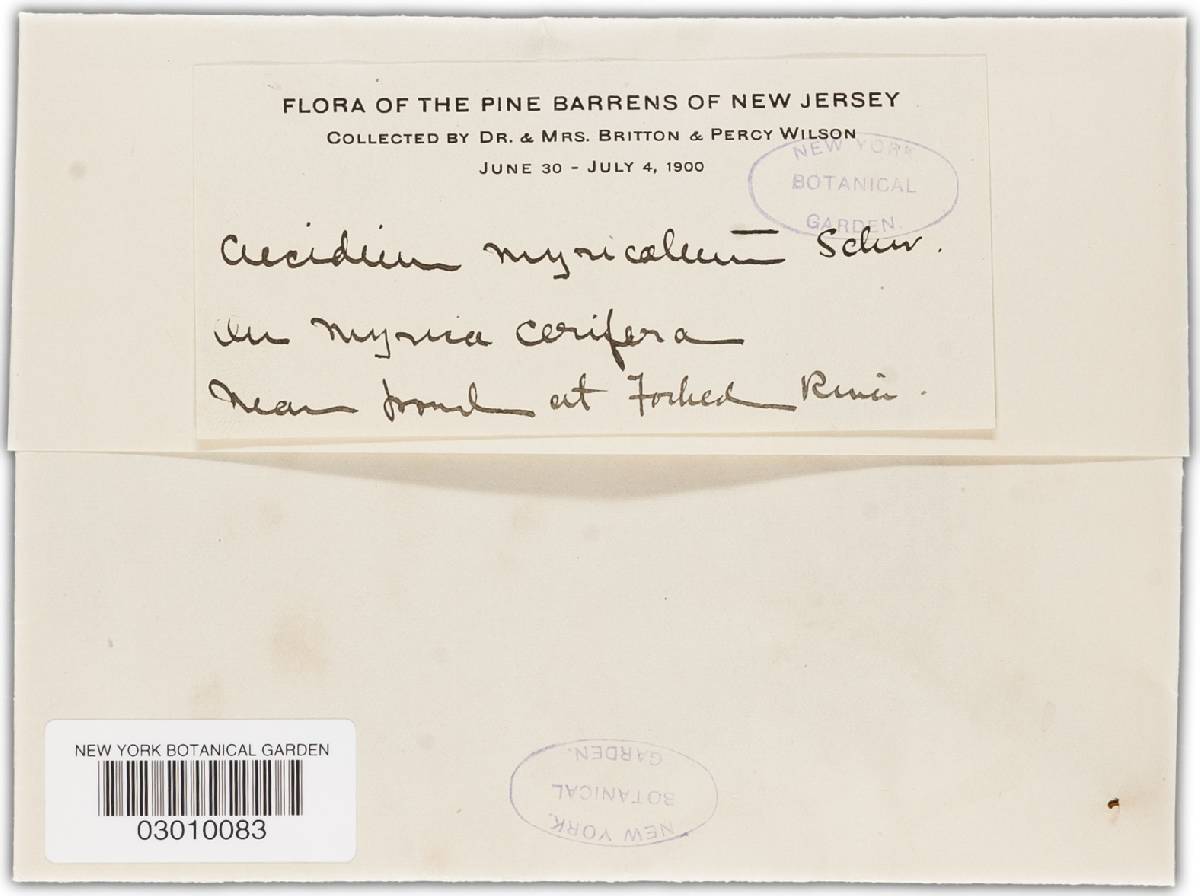 FLORA OF THE PINE BARRENS OF NEW JERSEY
COLLECTED BY DR. & MRS. BRITTON & PERCY WILSON
JUNE 30 - JULY 4, 1900
NEW YORK
BOTANICAL
GARDEN.
Aecidium myricatum Schw.
on Myrica cerifera
Near pond at Forked River.
NEW YORK BOTANICAL GARDEN
03010083
NEW YORK
BOTANICAL
GARDEN.